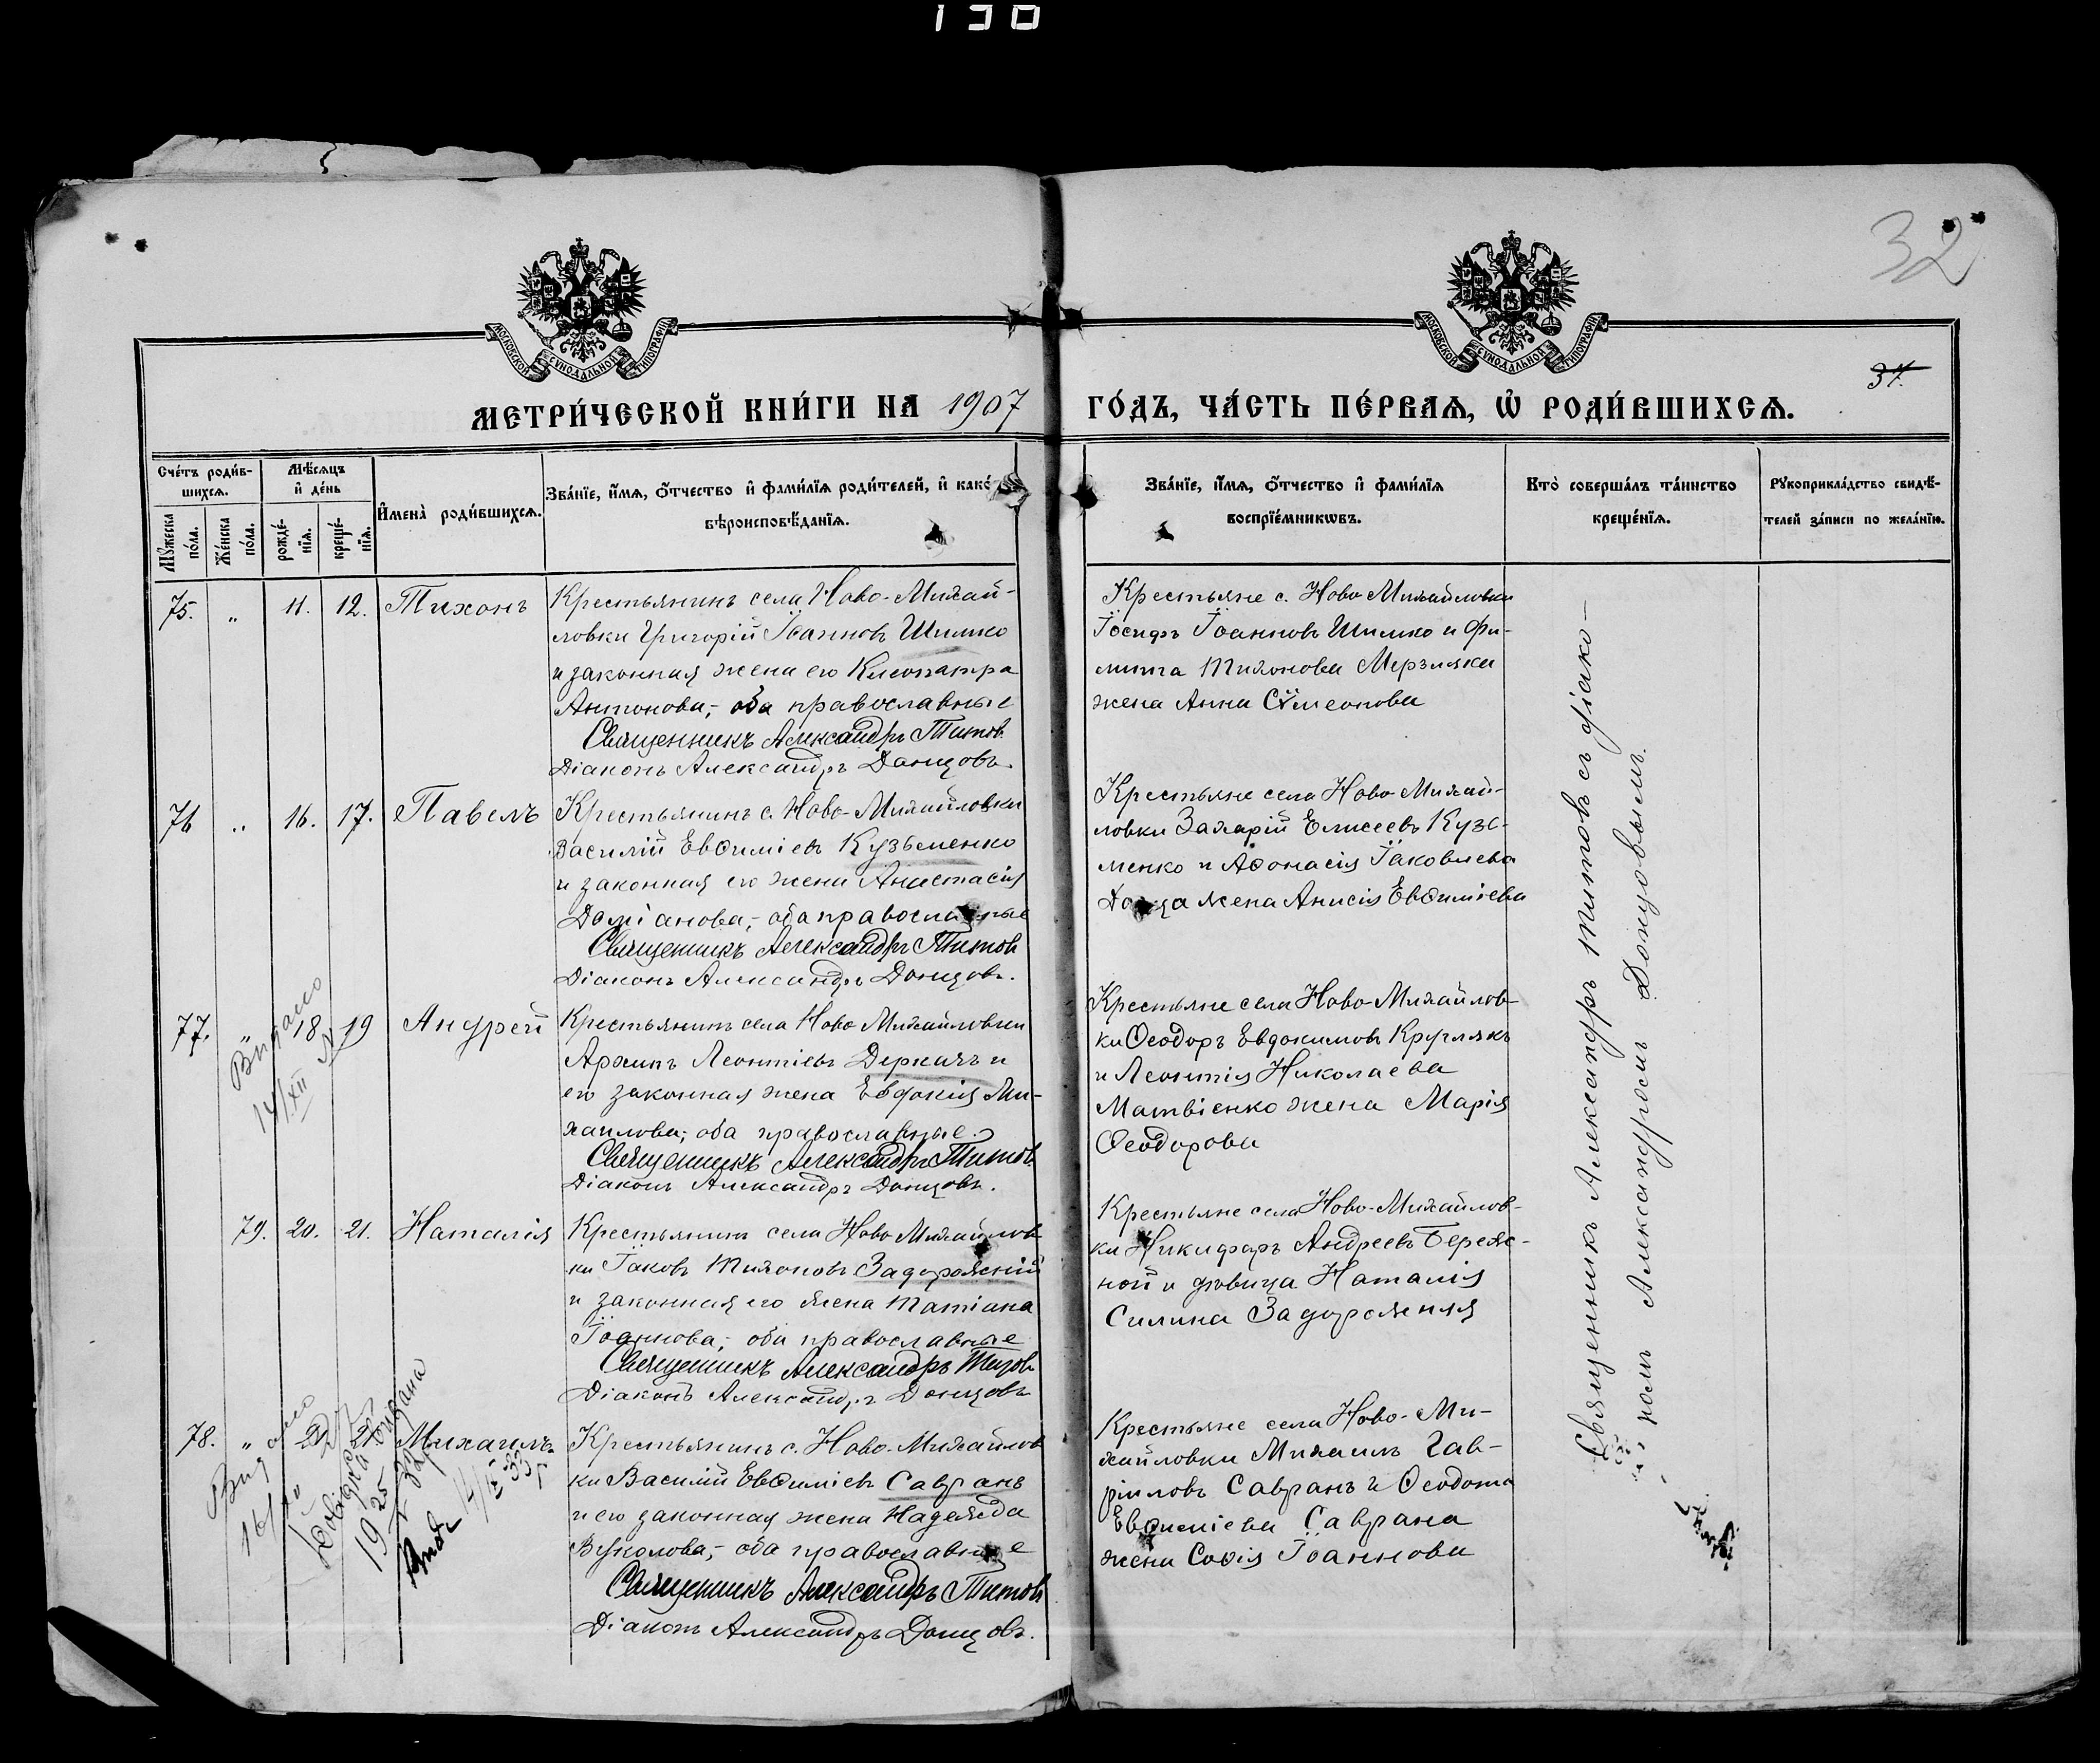 130
32
МОСКОВСКОЙ СѴНОДАЛЬНОЙ ТИПОГРАФІИ
МОСКОВСКОЙ СѴНОДАЛЬНОЙ ТИПОГРАФІИ
31.
МЕТРИ́ЧЕСКОЙ КНИ́ГИ НА 1907 ГО́ДЪ, ЧА́СТЬ ПЕ́РВАѦ, Ѡ҆ РОДИ́ВШИХСѦ.
Сче́тъ роди́в-
шихсѧ.
Мꙋ́жеска по́ла.
Же́нска по́ла.
Мѣ́сѧцъ
и҆ де́нь
рожде́-
нїѧ.
креще́-
нїѧ.
И҆мена̀ роди́вшихсѧ.
Зва́нїе, и҆́мѧ, ѻ҆́тчество и҆ фами́лїѧ роди́телей, и҆ како́
вѣроисповѣ́данїѧ.
Зва́нїе, и҆́мѧ, ѻ҆́тчество и҆ фами́лїѧ
воспрїе́мникѡвъ.
Кто̀ соверша́лъ та́инство
креще́нїѧ.
Рꙋкоприкла́дство свидѣ́-
телей за́писи по жела́нїю.
75. „ 11. 12. Тихонъ
Крестьянинъ села Ново-Михай-
ловки Григорій Іоанновъ Шимко
и законная жена его Клеопатра
Антонова,- оба православные
Священникъ Александръ Титов
Діаконъ Александръ Донцовъ.
Крестьяне с. Ново Михайловки
Іосифъ Іоанновъ Шимко и Фи-
липпа Тихонова Мерзляка
жена Анна Сѵмеонова
76 „ 16. 17. Павелъ
Крестьянинъ с. Ново-Михайловки
Василій Евѳиміевъ Кузьменко
и законная его жена Анастасія
Даміанова,- оба православные
Священникъ Александръ Титов
Діаконъ Александръ Донцовъ.
Крестьяне села Ново Михай-
ловки Захарій Елисеевъ Кузь-
менко и Аѳонасія Іаковлева
жена Анисія Евѳиміева
77. „ 18 19 Андрей
Видано
14/XII
Крестьянинъ села Ново Михайловки
Архипъ Леонтіевъ Деркачъ и
его законная жена Евдокія Ми-
хаилова; оба православные.
Священникъ Александръ Титов
Діаконъ Александръ Донцовъ.
Крестьяне села Ново-Михайлов-
ки Ѳеодоръ Евдокимовъ Круглякъ
и Леонтія Николаева
Матвіенко жена Марія
Ѳеодорова
79. 20. 21. Наталія
Крестьянинъ села Ново Михайлов
ки Іаковъ Тихоновъ Задорожній
и законная его жена Татіана
Іоаннова,- оба православные
Священникъ Александръ Титов
Діаконъ Александръ Донцовъ
Крестьяне села Ново-Михайлов-
ки Никифоръ Андреевъ Береж-
ной и дѣвица Наталія
Силина Задорожняя
78. „ Михаилъ
Видано
1925
Крестьянинъ с. Ново-Михайлов
ки Василій Евѳиміевъ Савранъ
и его законная жена Надежда
Вуколова,- оба православные
Священникъ Александръ Титовъ
Діаконъ Александръ Донцовъ.
Крестьяне села Ново-Ми-
хайловки Михаилъ Гав-
ріиловъ Савранъ и Ѳеодота
Евѳиміева Саврана
жена Софія Іоаннова
Священникъ Александръ Титовъ съ діако-
номъ Александромъ Донцовымъ.